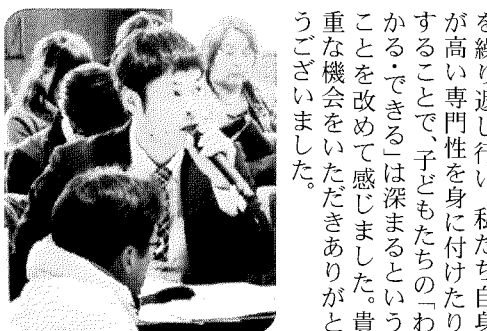 を繰り返し行い、私たち自身
が高い専門性を身に付けたり
することで、子どもたちの「わ
かる・できる」は深まるという
ことを改めて感じました。貴
重な機会をいただきありがと
うございました。